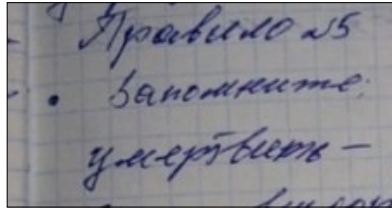 Правило №5
• Запомните:
умертвить –